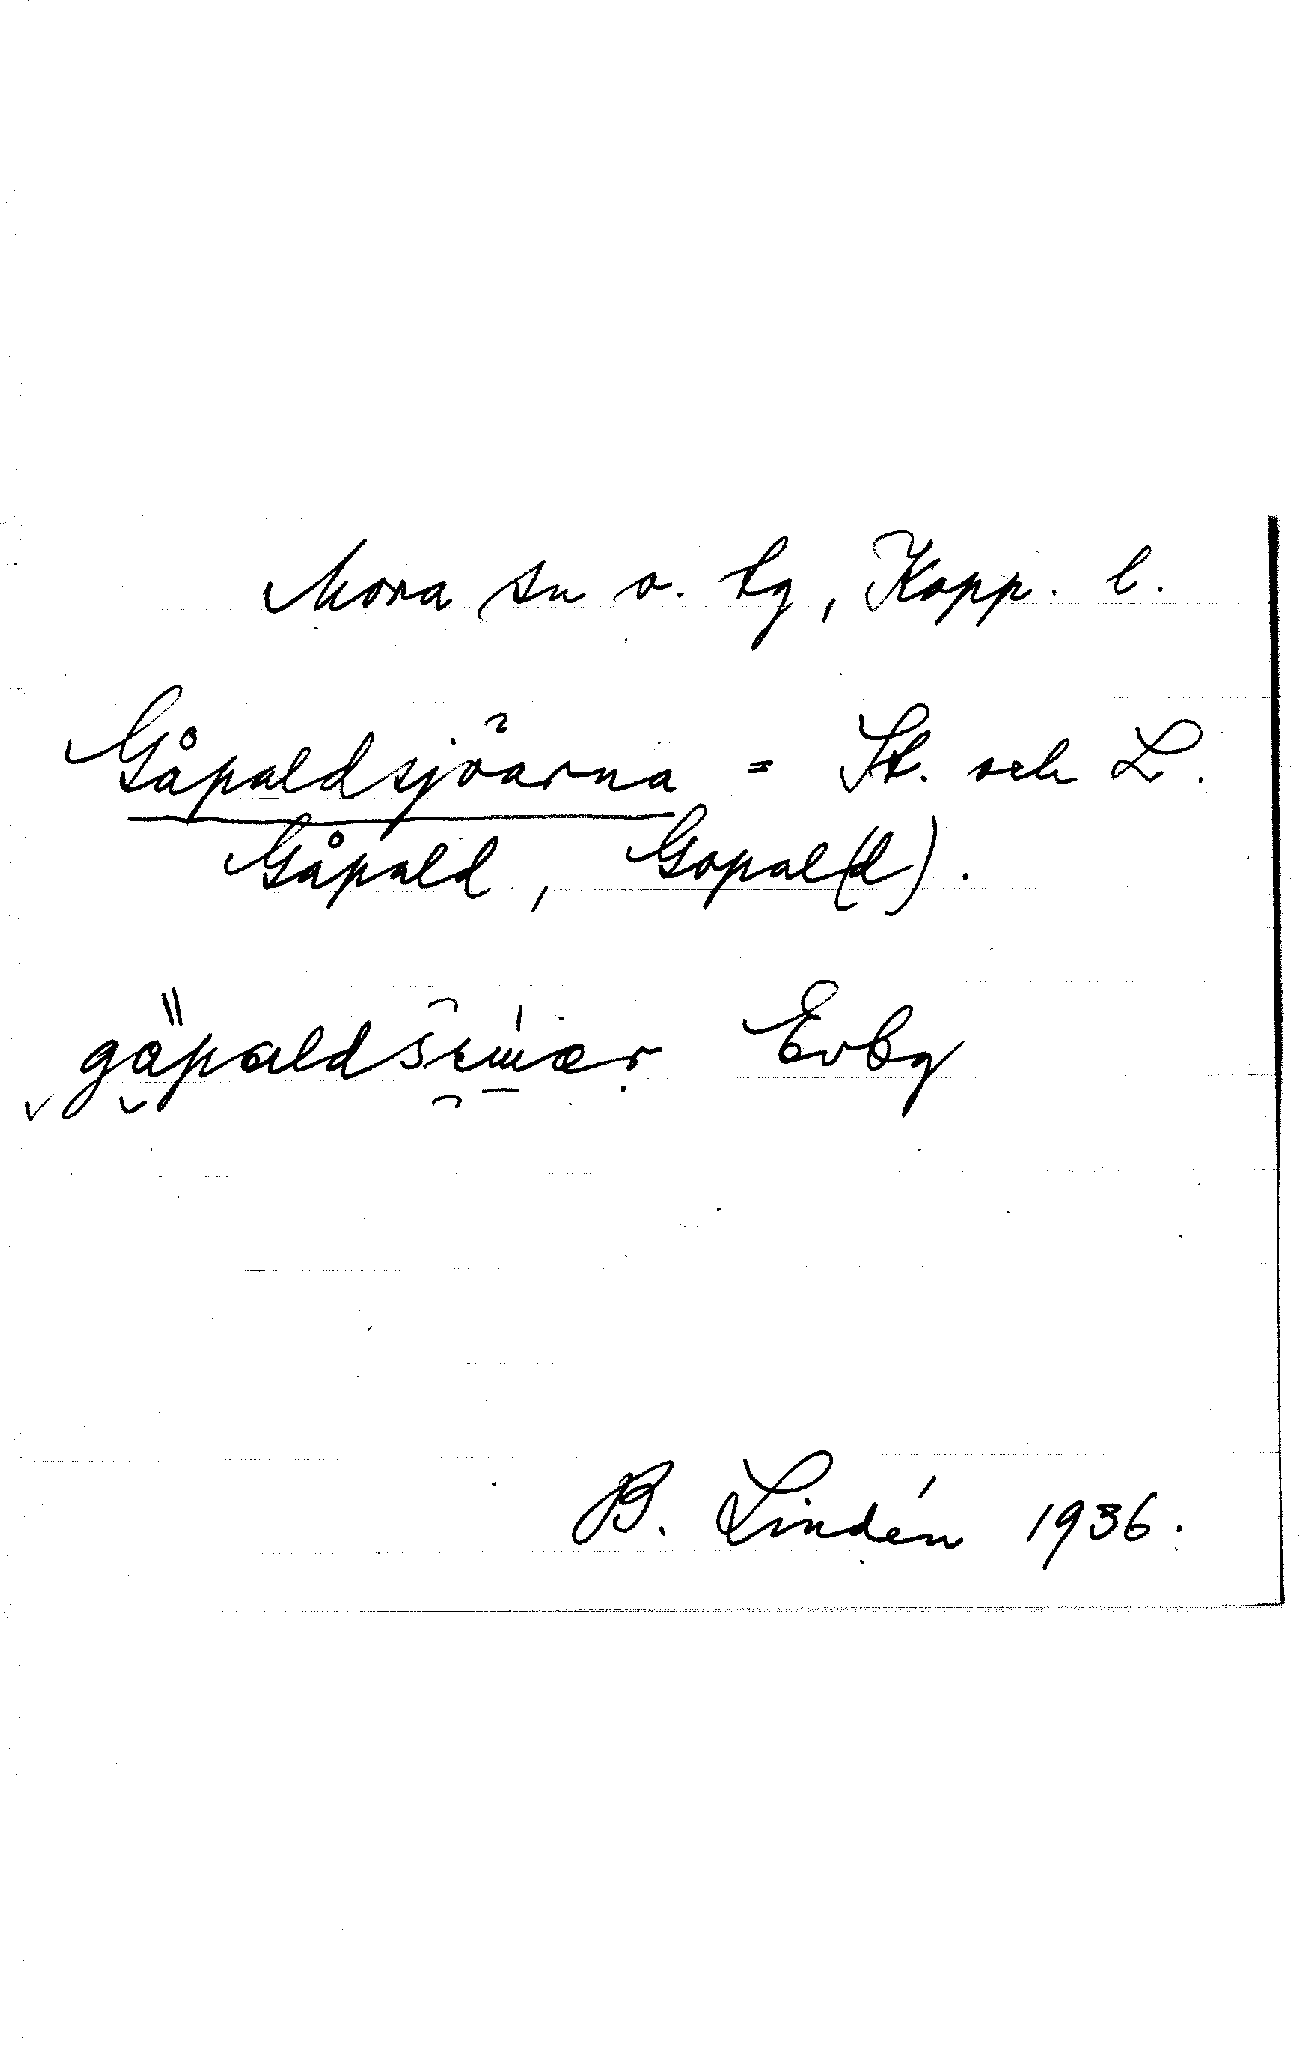 Mora sn o. tg, Kopp. l.
Gåpaldsjöarna = St. och L.
Gåpald, Gopal(d).
Evbg
B. Lindén 1936.